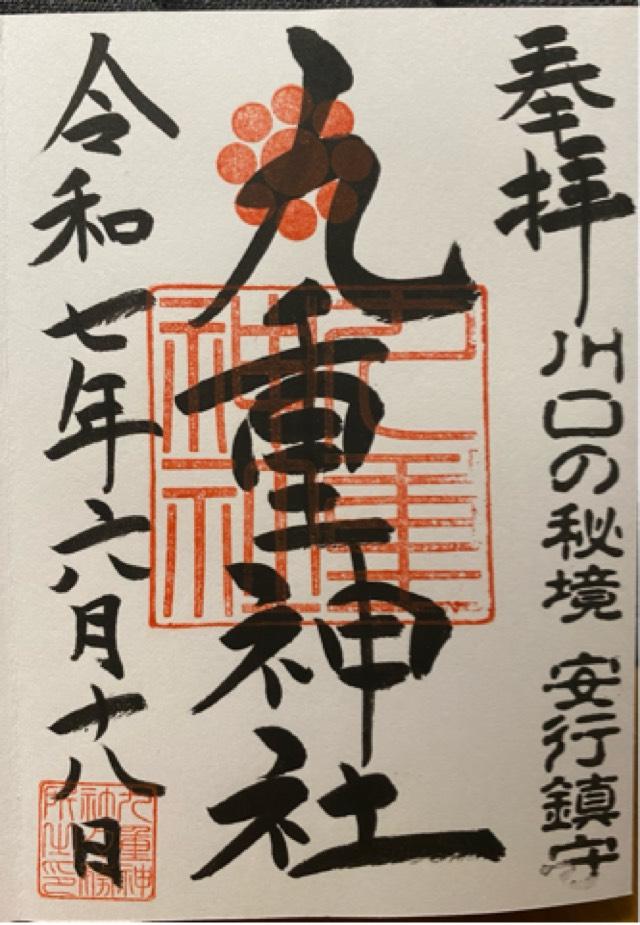 奉拝
川口の秘境 安行鎮守
九重神社
九重神社
令和七年六月十八日